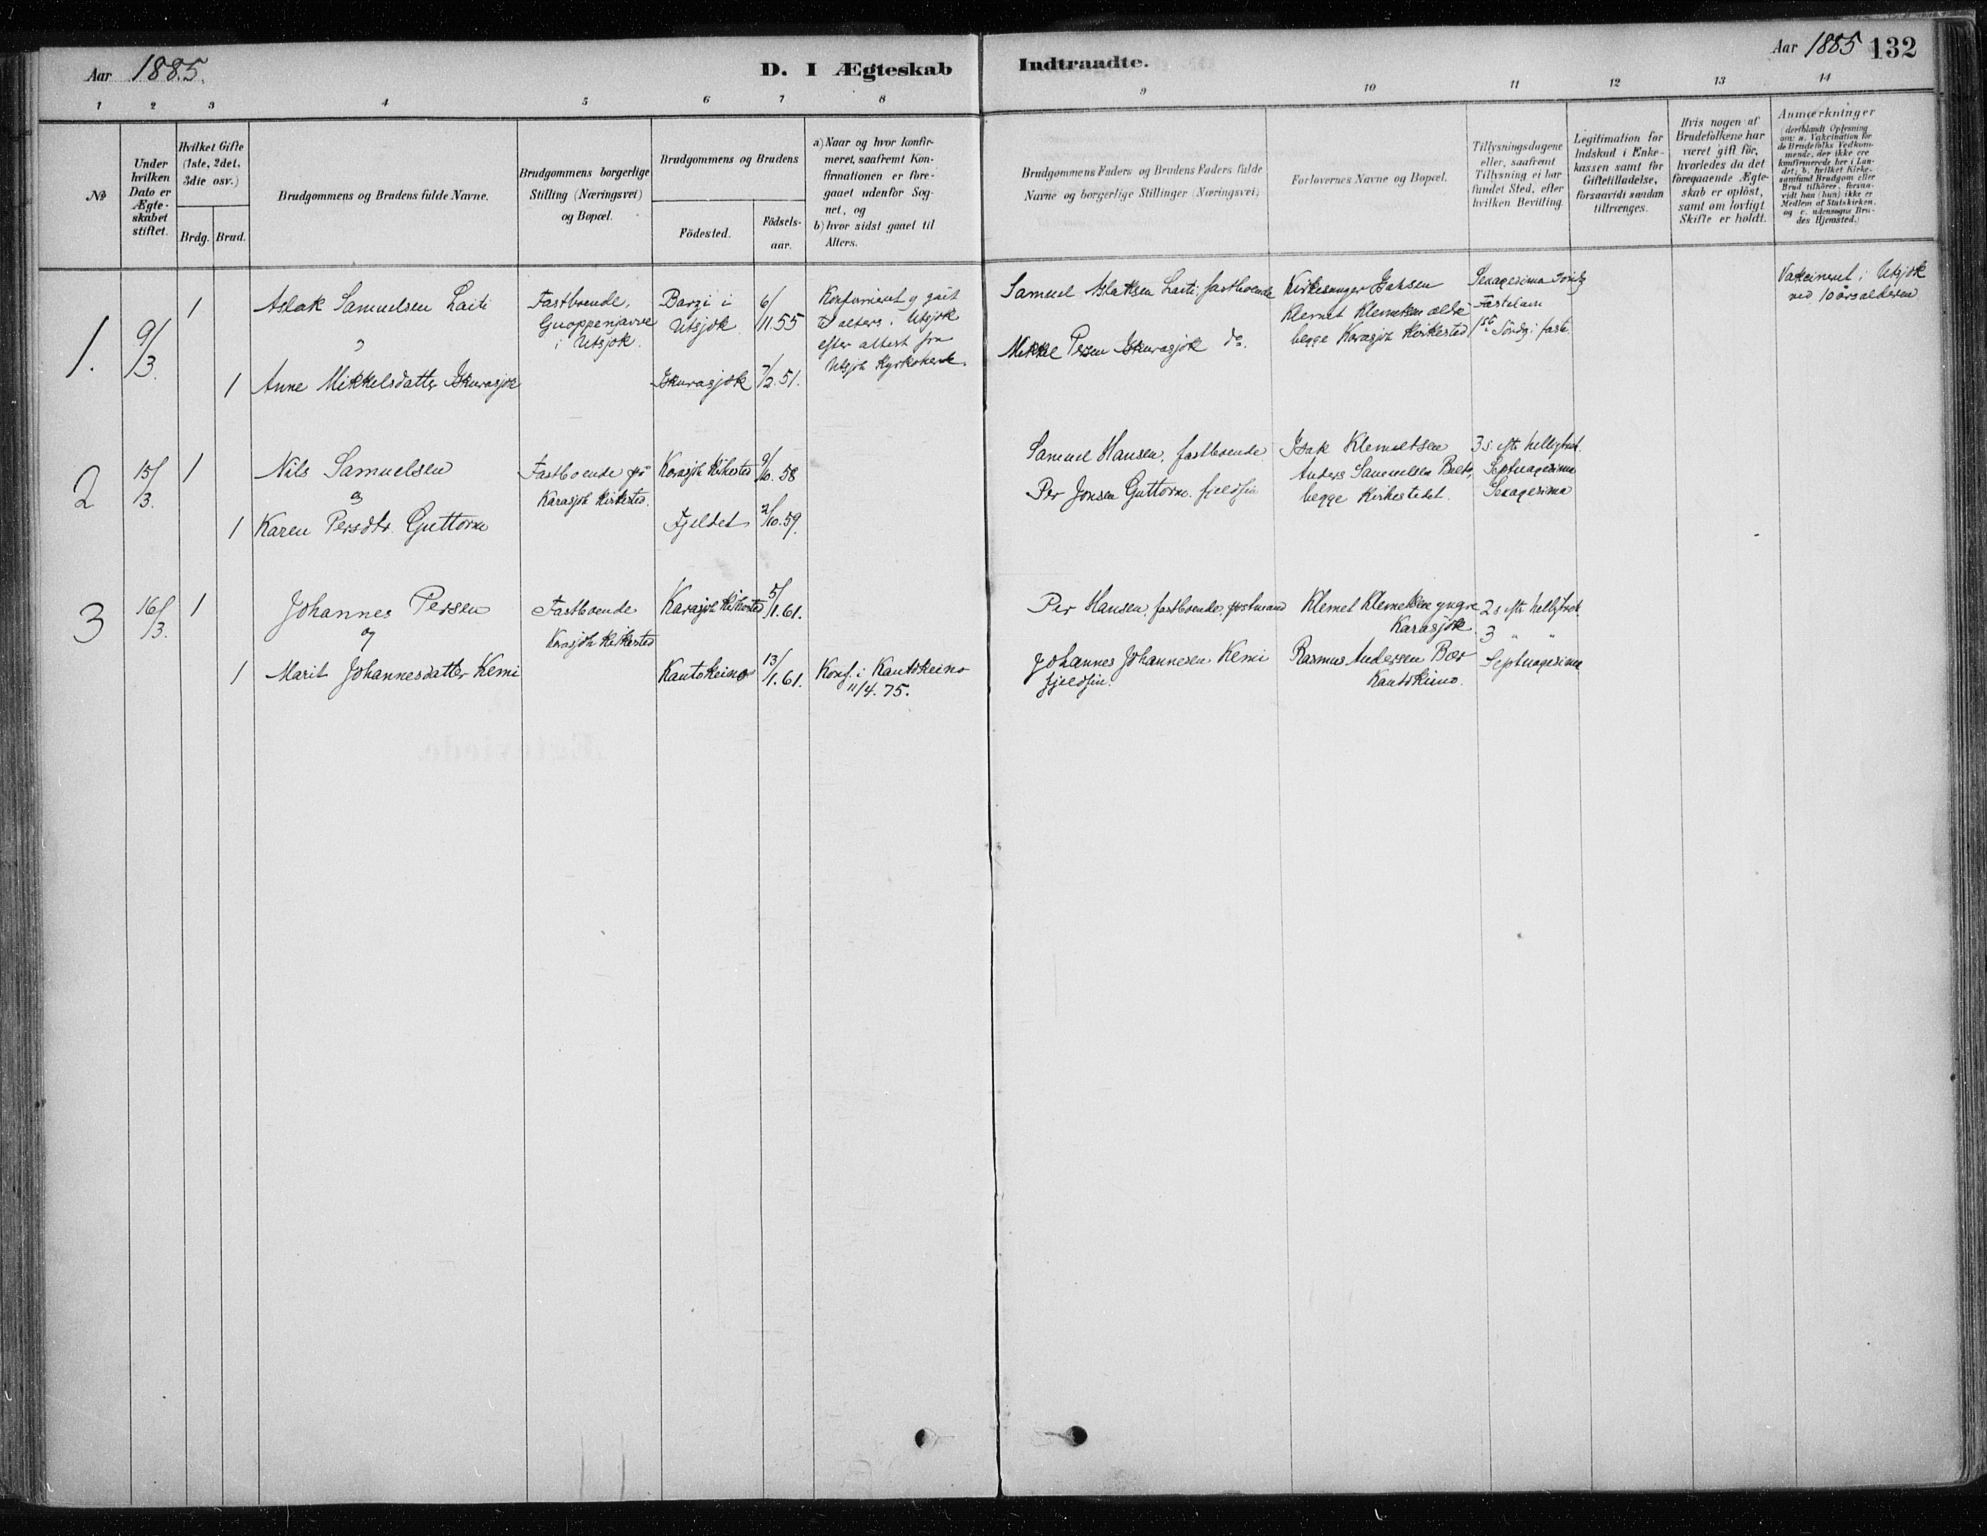 Aar 1885.
D. I Ægteskab Indtraadte.
Aar 1885 132
1 2 3 4 5 6 7 8 9 10 11 12 13 14
№
Under hvilken Dato er Ægte-skabet stiftet.
Hvilket Gifte (1ste, 2det, 3die osv.)
Brdg. Brud.
Brudgommens og Brudens fulde Navne.
Brudgommens borgerlige Stilling (Næringsvei) og Bopæl.
Brudgommens og Brudens
Födested.
Födsels-aar.
a) Naar og hvor konfir-
meret, saafremt Kon-
firmationen er fore-
gaaet udenfor Sog-
net, og
b) hvor sidst gaaet til
Alters.
Brudgommens Faders og Brudens Faders fulde
Navne og borgerlige Stillinger (Næringsvei).
Forlovernes Navne og Bopæl.
Tillysningsdagene
eller, saafremt
Tillysning ei har
fundet Sted, efter
hvilken Bevilling.
Legitimation for
Indskud i Enke-
kassen samt for
Giftetilladelse,
forsaavidt saadan
tiltrænges.
Hvis nogen af
Brudefolkene har
været gift för,
hvorledes da det
foregaaende Ægte-
skab er oplöst,
samt om lovligt
Skifte er holdt.
Anmærkninger
(deriblandt Oplysning
om: a. Vakcination for
de Brudefolks Vedkom-
mende, der ikke ere
konfirmerede her i Lan-
det; b. hvilket Kirke-
samfund Brudgom eller
Brud tilhörer, forsaa-
vidt han (hun) ikke er
Medlem af Statskirken,
og c. udensogns Bru-
des Hjemsted.)
1. 9/3. 1 Aslak Samuelsen Laiti
Fastboende, Guoppenjavre i Utsjok.
Bargi i Utsjok. 6/11.55
Konfirmeret og gået
til alters i Utsjok
efter attest fra
Utsjok Kyrkoherde.
Samuel Aslaksen Laiti, fastboende
Kirkesanger Isaksen
Klemet Klemetsen ældre
begge Karasjok Kirkested
Sexagesima Söndg
Fastelavn
1ste Söndg i faste
Vakcineret i Utsjok
ved 10 årsalderen
1 Anne Mikkelsdatter Iskurasjok
Iskurasjok 7/2.51.
Mikkel Persen Iskurasjok do.
2 15/3. 1 Nils Samuelsen
og
Fastboende på
Karasjok Kirkested.
Karasjok Kirkested 9/10.58
Samuel Hansen, fastboende.
Isak Klemetsen
Anders Samuelsen Balto,
begge Kirkestedet.
3 s. eftr helligtrek.
Septuagesima
Sexagesima
1 Karen Persdtr. Guttorm
Fjeldet 2/10.59.
Per Jonsen Guttorm, fjeldfin
3 16/3. 1 Johannes Persen
og
Fastboende
Karasjok Kirkested
Karasjok Kirkested 5/1.61.
Per Hansen, fastboende, postmand
Klemet Klemetsen yngre
Karasjok
2 s eftr helligtrek.
3 " "
Septuagesima
1 Marit Johannesdatter Kemi
Kautokeino 13/1.61.
Konf. i Kautokeino
11/4.75.
Johannes Johannesen Kemi
fjeldfin.
Rasmus Andersen Bær
Kautokeino.